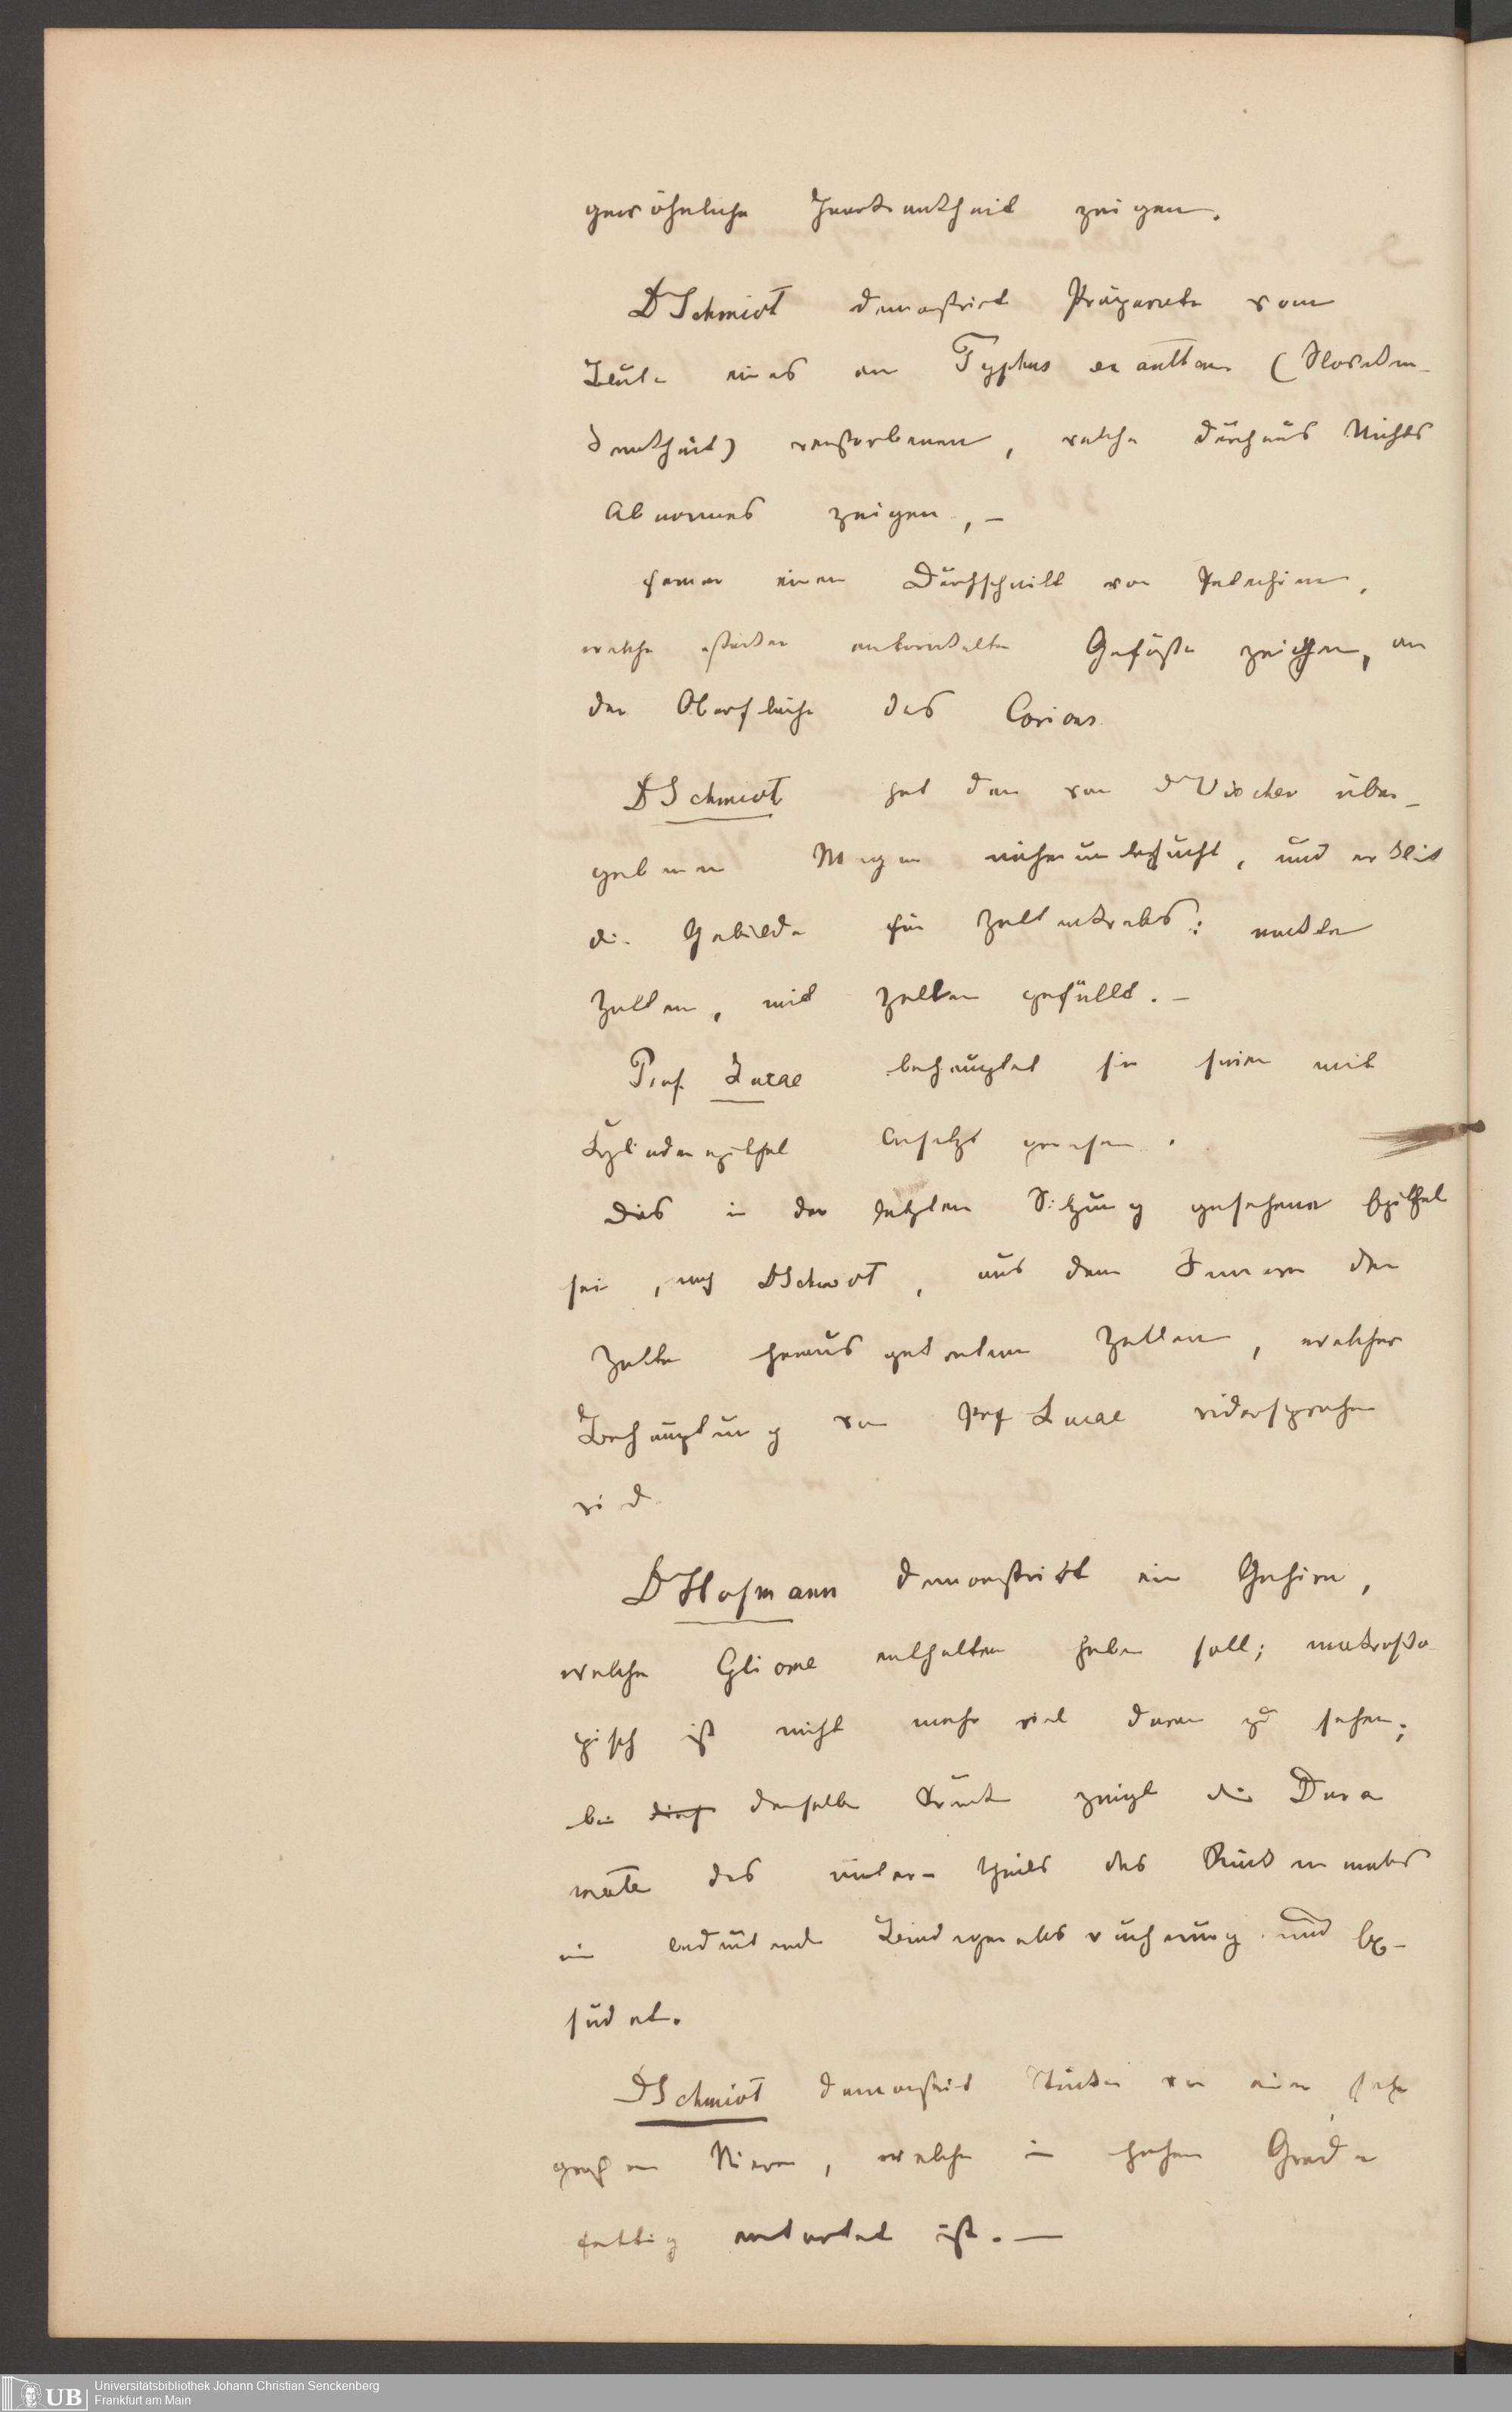 gewöhnliche Hautkrankheit zeigen.
Dr Schmidt demonstrirt Präparate vom
Blute eines an Typhus exanthem (Flecken-
krankheit) verstorbenen, welche durchaus Nichts
Abnormes zeigen, –
ferner einen Durchschnitt von Petechien,
welche stärker entwickelte Gefäße zeigen, an
der Oberfläche des Corions
Dr Schmidt hat den von Dr Vischer über-
gebenen Magen näher untersucht, und erklärt
die Gebilde für Zellenkrebs: nackte
Zellen, mit Zellen gefüllt. –
Prof. Lucae behauptet sie seien mit
Cylinderepithel besetzt gewesen.
Das in der letzten Sitzung gesehene Epithel
sei, nach Dr Schmidt, aus dem Innern der
Zelle heraus getretene Zellen, welcher
Behauptung von Prof Lucae widersprochen
wird
Dr Hofmann demonstrirt ein Gehirn,
welches Gliome enthalten haben soll; makrosko-
pisch ist nicht mehr viel daran zu sehen;
bei derselben Kranken zeigt die Dura
mater des unteren Theils des Rückenmarks
eine bedeutende Bindegewebswucherung und Ex-
sudat.
Dr Schmidt demonstrirt Stücke von einer sehr
großen Niere, welche in hohem Grade
fettig entartet ist. —
Universitätsbibliothek Johann Christian Senckenberg
Frankfurt am Main
UB